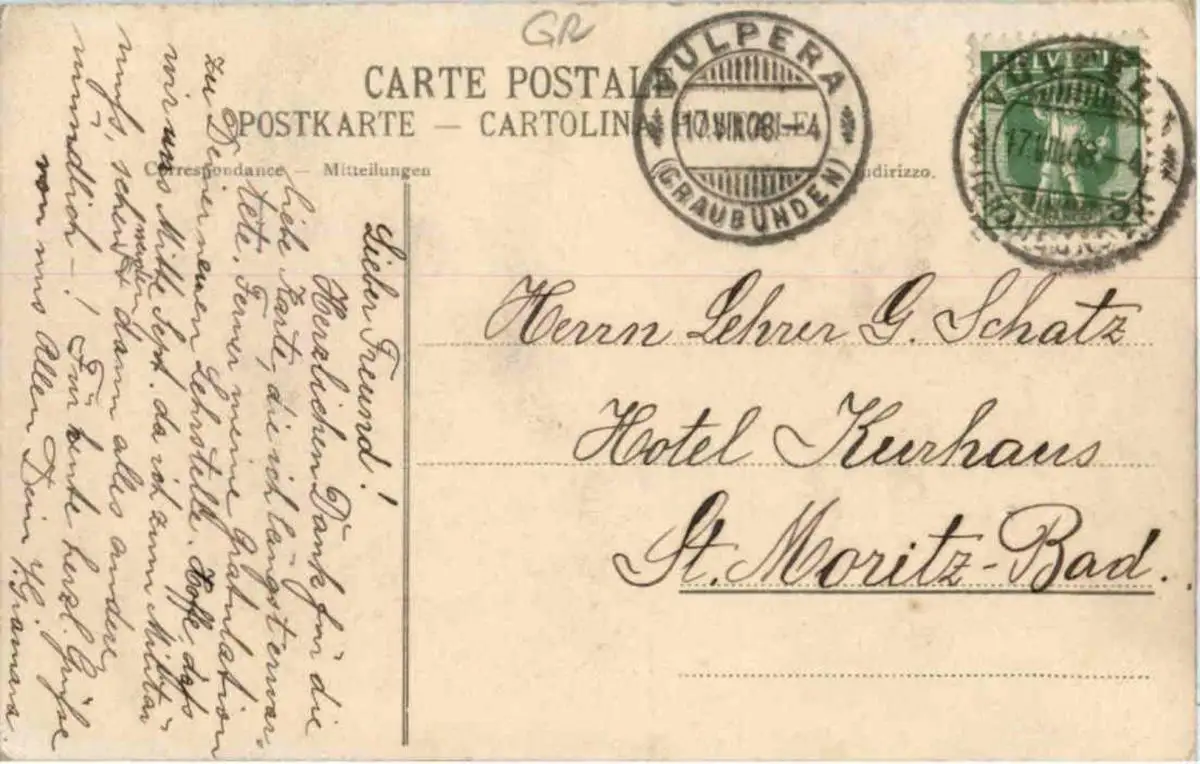 GR
CARTE POSTALE
POSTKARTE — CARTOLINA POSTALE
Correspondance — Mitteilungen
Indirizzo.
VULPERA
17.VIII.08.—4
(GRAUBÜNDEN)
HELVETIA
5
17.VIII.08.—4
Herrn Lehrer G. Schatz
Hotel Kurhaus
St. Moritz-Bad.
Lieber Freund!
Herzlichen Dank für die
liebe Karte, die ich längst erwar-
tete. Ferner meine Gratulation
zu Deiner neuen Lehrstelle. Hoffe dass
wir uns Mitte Sept. da ich zum Militär
muss, sehen werden dann alles andere
mündlich —! Für heute herzl. Grüsse
von uns Allen Dein